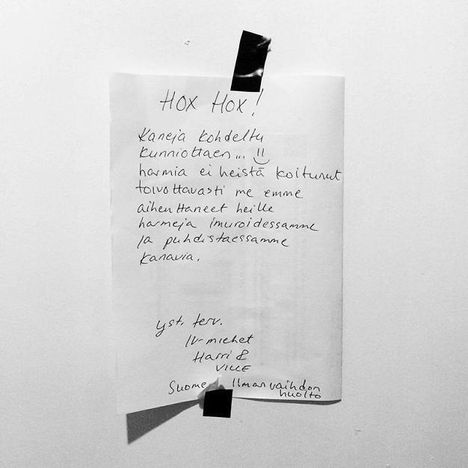 HOX HOX!
Kaneja kohdeltu
kunniottaen... !!
harmia ei heistä koitunut
toivottavasti me emme
aiheuttaneet heille
harmeja imuroidessamme
ja puhdistaessamme
kanavia.
yst. terv.
IV-miehet
Harri &
VILLE
Suomen Ilmanvaihdon
huolto